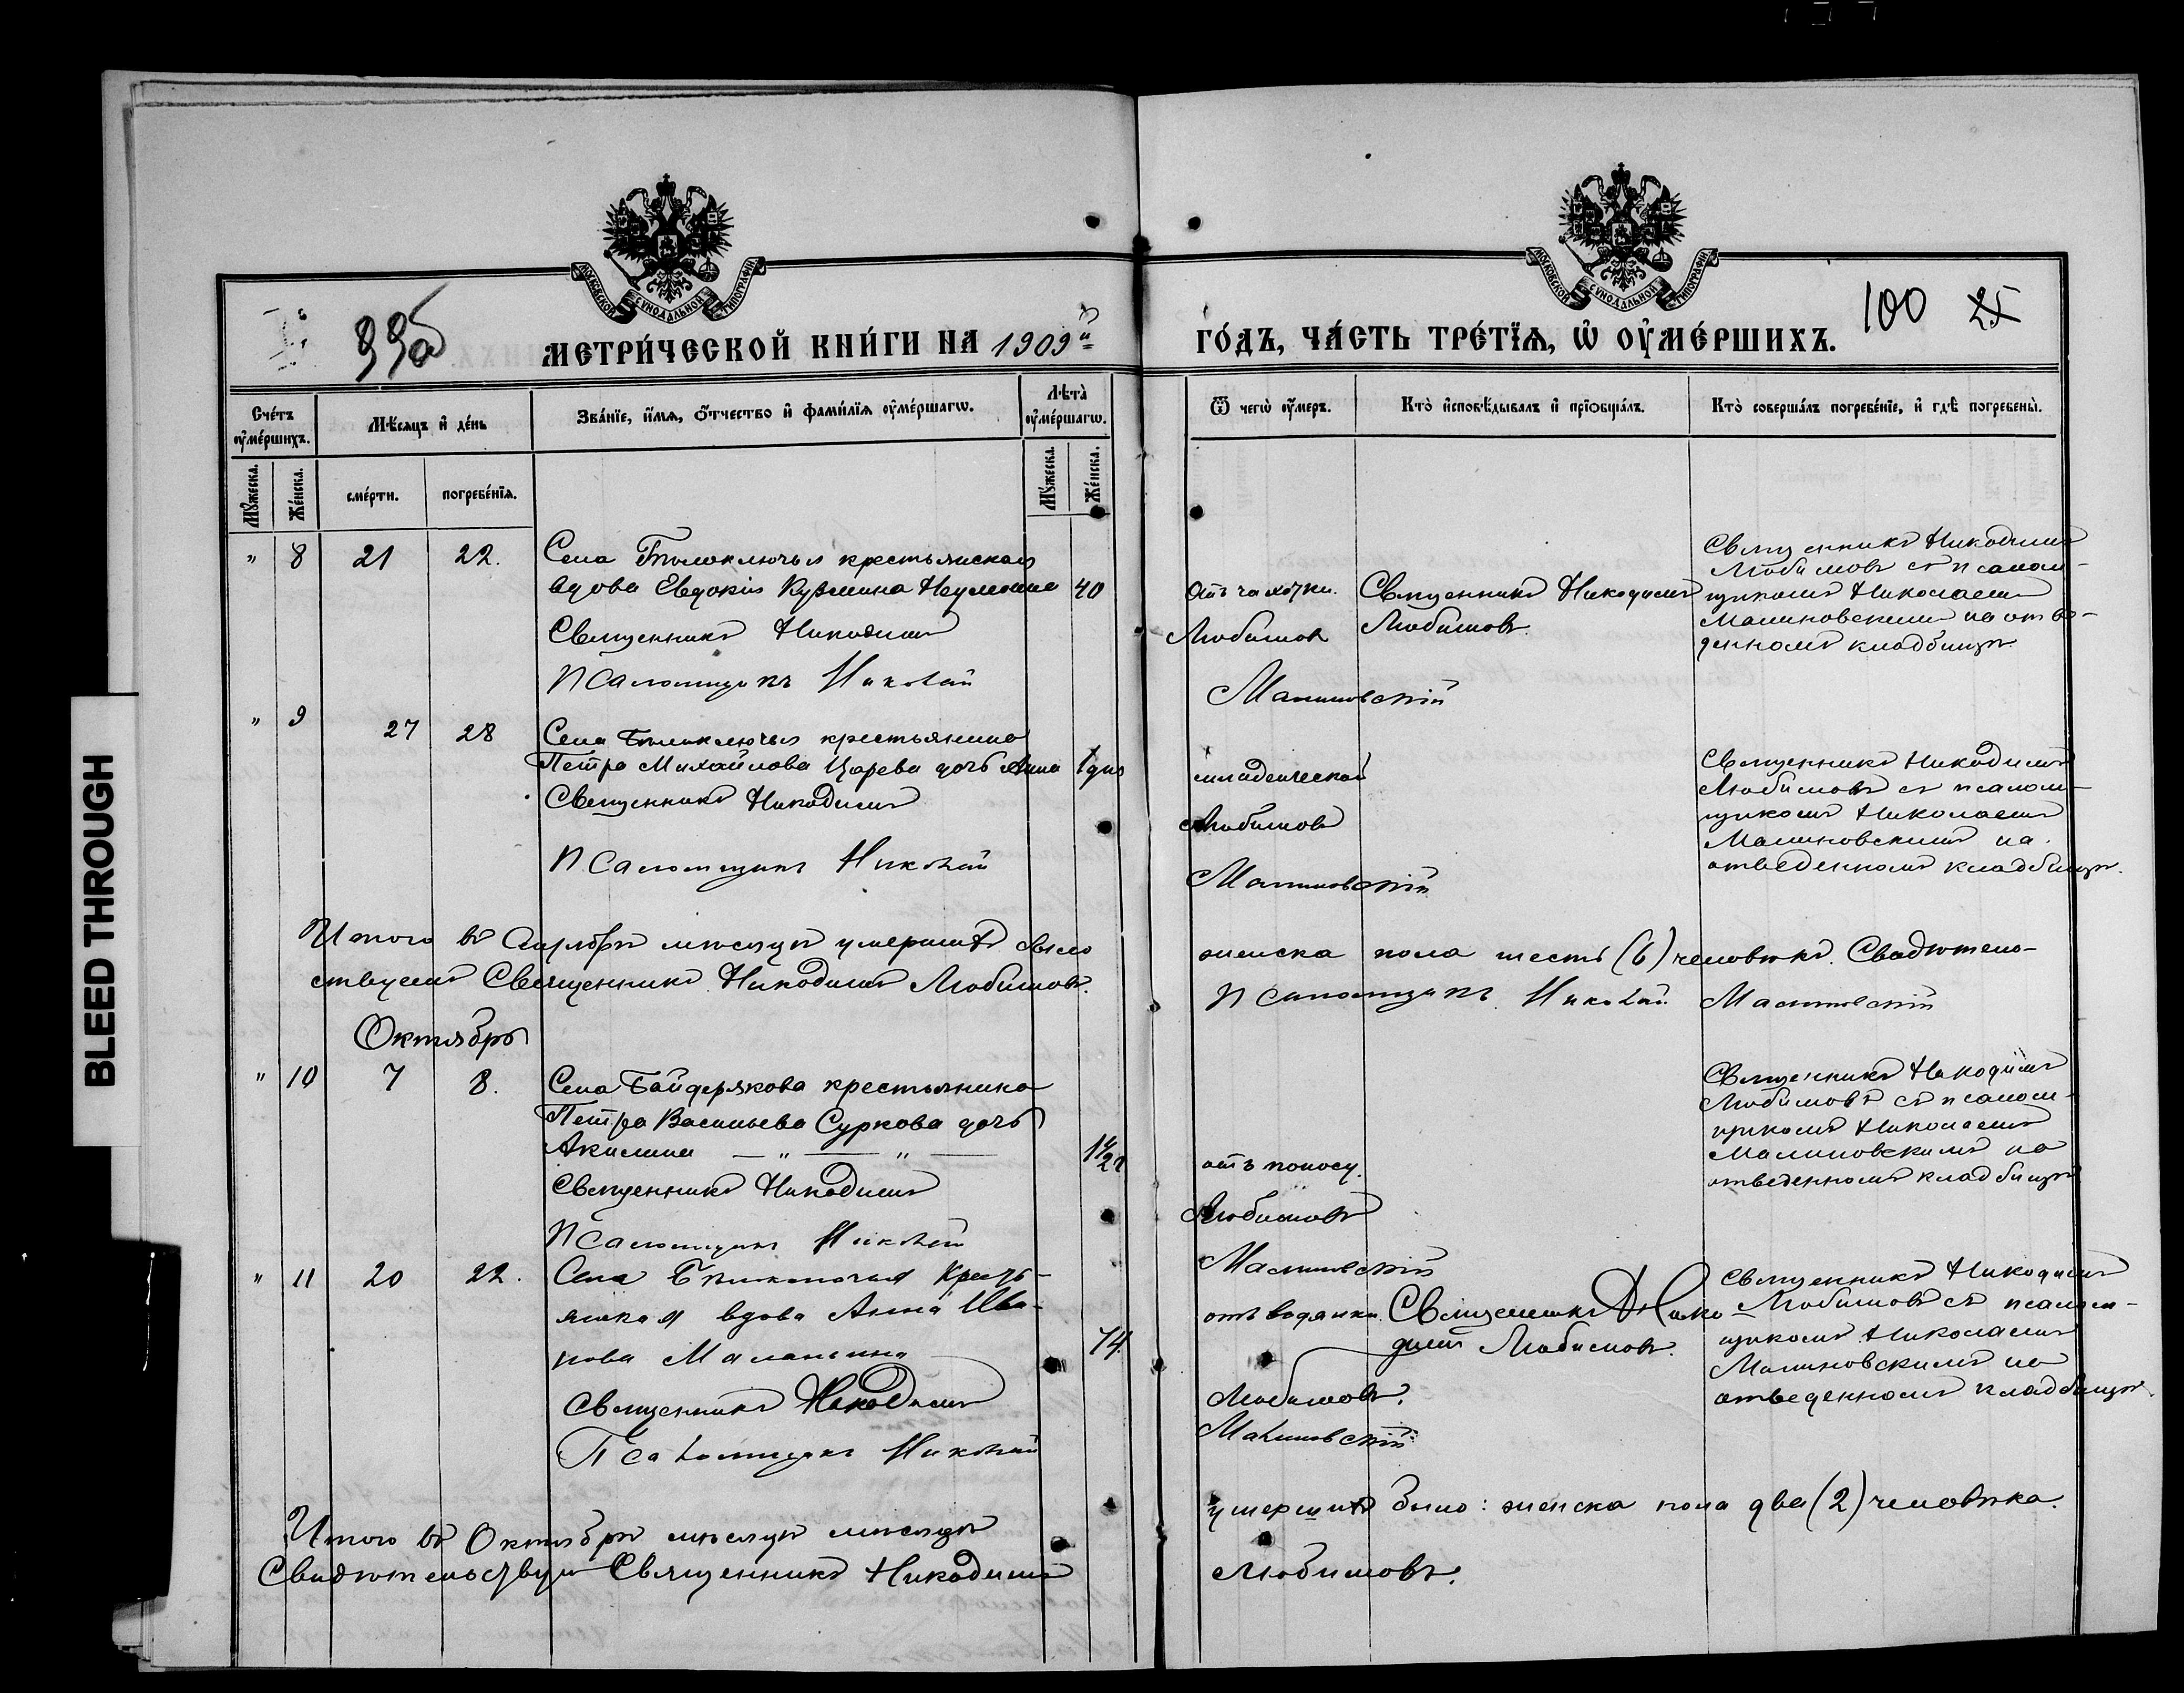 BLEED THROUGH
МОСКОВСКОЙ СѴНОДАЛЬНОЙ ТИПОГРАФІИ
МОСКОВСКОЙ СѴНОДАЛЬНОЙ ТИПОГРАФІИ
99об
МЕТРИ́ЧЕСКОЙ КНИ́ГИ НА 1909й
ГО́ДЪ, ЧА́СТЬ ТРЕ́ТЇѦ, Ѡ҆ ОУ҆МЕ́РШИХЪ.
100 25
Сче́тъ оу҆ме́ршихъ.
Мѣ́сѧцъ и҆ де́нь
Зва́нїе, и҆́мѧ, ѻ҆́тчество и҆ фами́лїѧ оу҆ме́ршагѡ.
Лѣ́та оу҆ме́ршагѡ.
Ѿ чегѡ̀ оу҆́меръ.
Кто̀ и҆сповѣ́дывалъ и҆ прїѡбща́лъ.
Кто̀ соверша́лъ погребе́нїе, и҆ гдѣ̀ погребены̀.
Мꙋ́жеска.
Же́нска.
сме́рти.
погребе́нїѧ.
Мꙋ́жеска.
Же́нска.
" 8 21 22. Села Бѣлоключья крестьянская
вдова Евдокія Кузмина Наумова 40
Священникъ Никодимъ
Псаломщикъ Николай
отъ чахотки.
Любимов
Малиновскій
Священникъ Никодимъ
Любимовъ.
Священникъ Никодимъ
Любимовъ съ псалом-
щикомъ Николаемъ
Малиновскимъ на отве-
денномъ кладбищѣ.
" 9 27 28 Села Бѣлоключья крестьянина
Петра Михайлова Царева дочь Анна 1 дня
Священникъ Никодимъ
Псаломщикъ Николай
младенческой
Любимовъ
Малиновскій
Священникъ Никодимъ
Любимовъ съ псалом-
щикомъ Николаемъ
Малиновскимъ на
отведенномъ кладбищѣ.
Итого въ Сентябрѣ мѣсяцѣ умершихъ было женска пола шесть (6) человѣкъ. Свидѣтель-
ствуемъ Священникъ Никодимъ Любимовъ. Псаломщикъ Николай Малиновскій
Октябрь
" 10 7 8. Села Байдерякова крестьянина
Петра Васильева Суркова дочь
Акилина — " — " —
Священникъ Никодимъ
Псаломщикъ Николай
отъ поносу.
Любимовъ
Малиновскій
Священникъ Никодимъ
Любимовъ съ псалом-
щикомъ Николаемъ
Малиновскимъ на
отведенномъ кладбищѣ
" 11 20 22. Села Бѣлоключья Кресть-
янская вдова Анна Ива-
нова Маланьина 74.
Священникъ Никодимъ
Псаломщикъ Николай
отъ водянки.
Любимовъ.
Малиновскій
Священникъ Нико-
димъ Любимовъ.
Священникъ Никодимъ
Любимовъ съ псалом-
щикомъ Николаемъ
Малиновскимъ на
отведенномъ кладбищѣ.
Итого въ Октябрѣ мѣсяцѣ мѣсяцѣ умершихъ было: женска пола два (2) человѣка.
Свидѣтельствуемъ Священникъ Никодимъ Любимовъ.